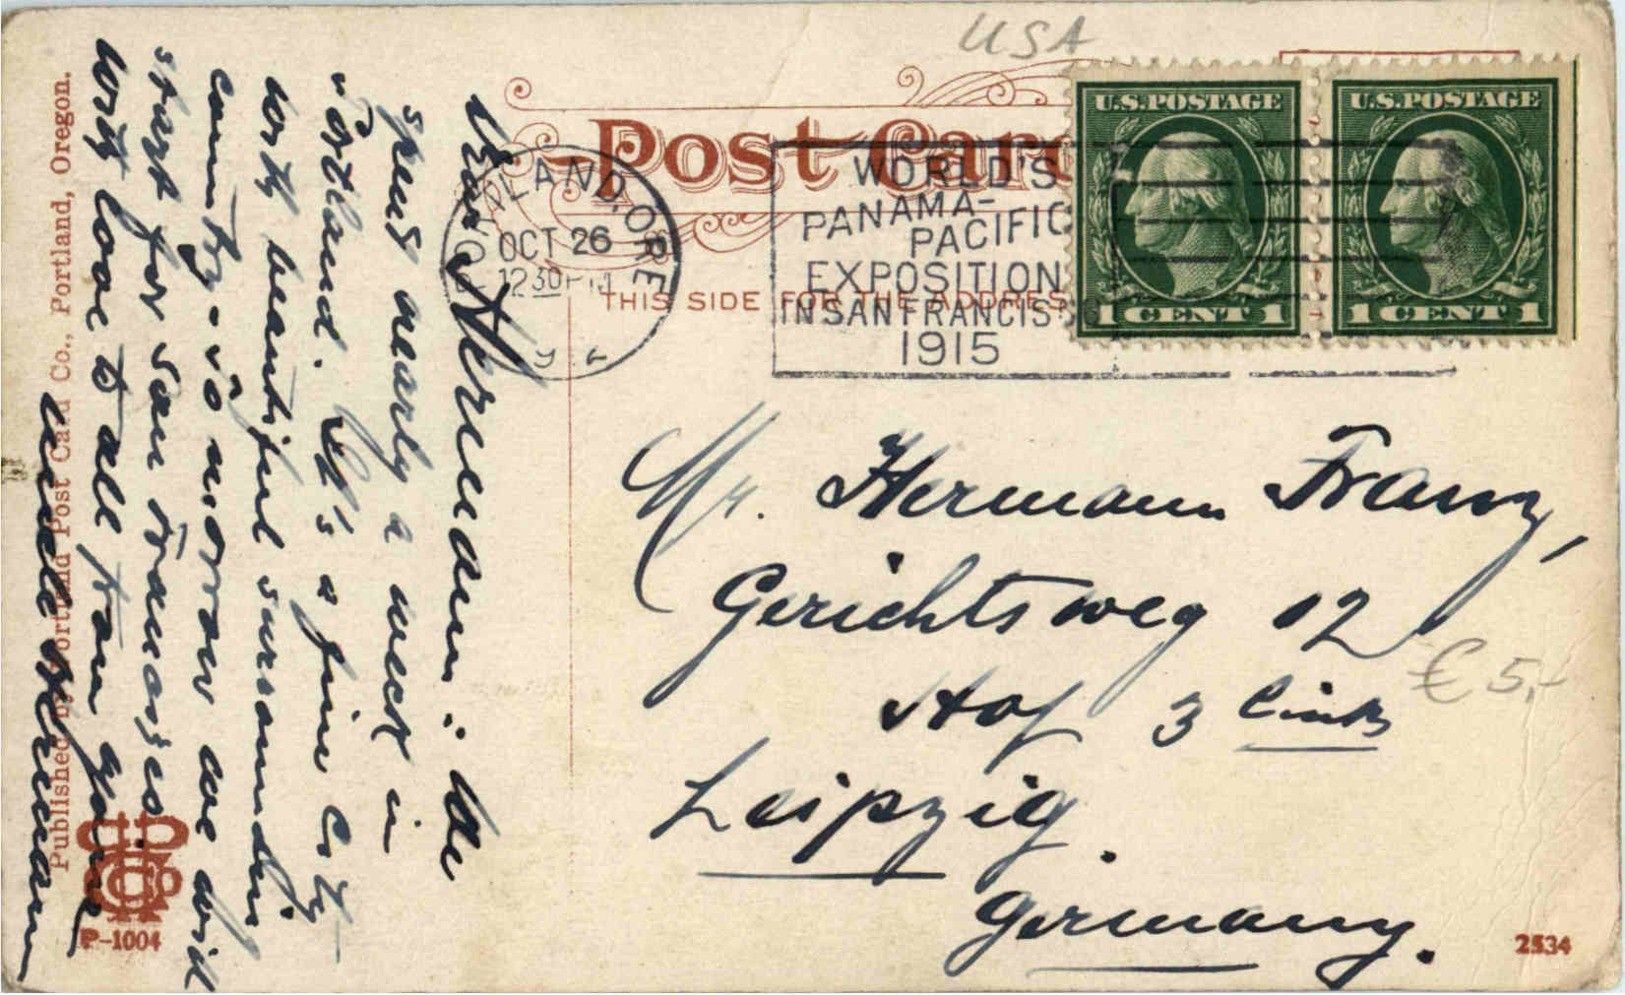 USA
Post Card
THIS SIDE FOR THE ADDRES
PORTLAND, ORE.
OCT 26
1230 PM
WORLD'S
PANAMA-
PACIFIC
EXPOSITION
IN SAN FRANCISCO
1915
U.S. POSTAGE
1 CENT 1
U.S. POSTAGE
1 CENT 1
Dear Hermann: We
spend nearly a week in
Portland. It's a fine City
with beautiful surrounding
country - To morrow we will
start for San Francisco
with love to all from your
uncle Hermann
Mr. Hermann Franz,
Gerichtsweg 12
Hof 3 links
Leipzig.
Germany.
€ 5,-
Published by Portland Post Card Co., Portland, Oregon.
P-1004
2534